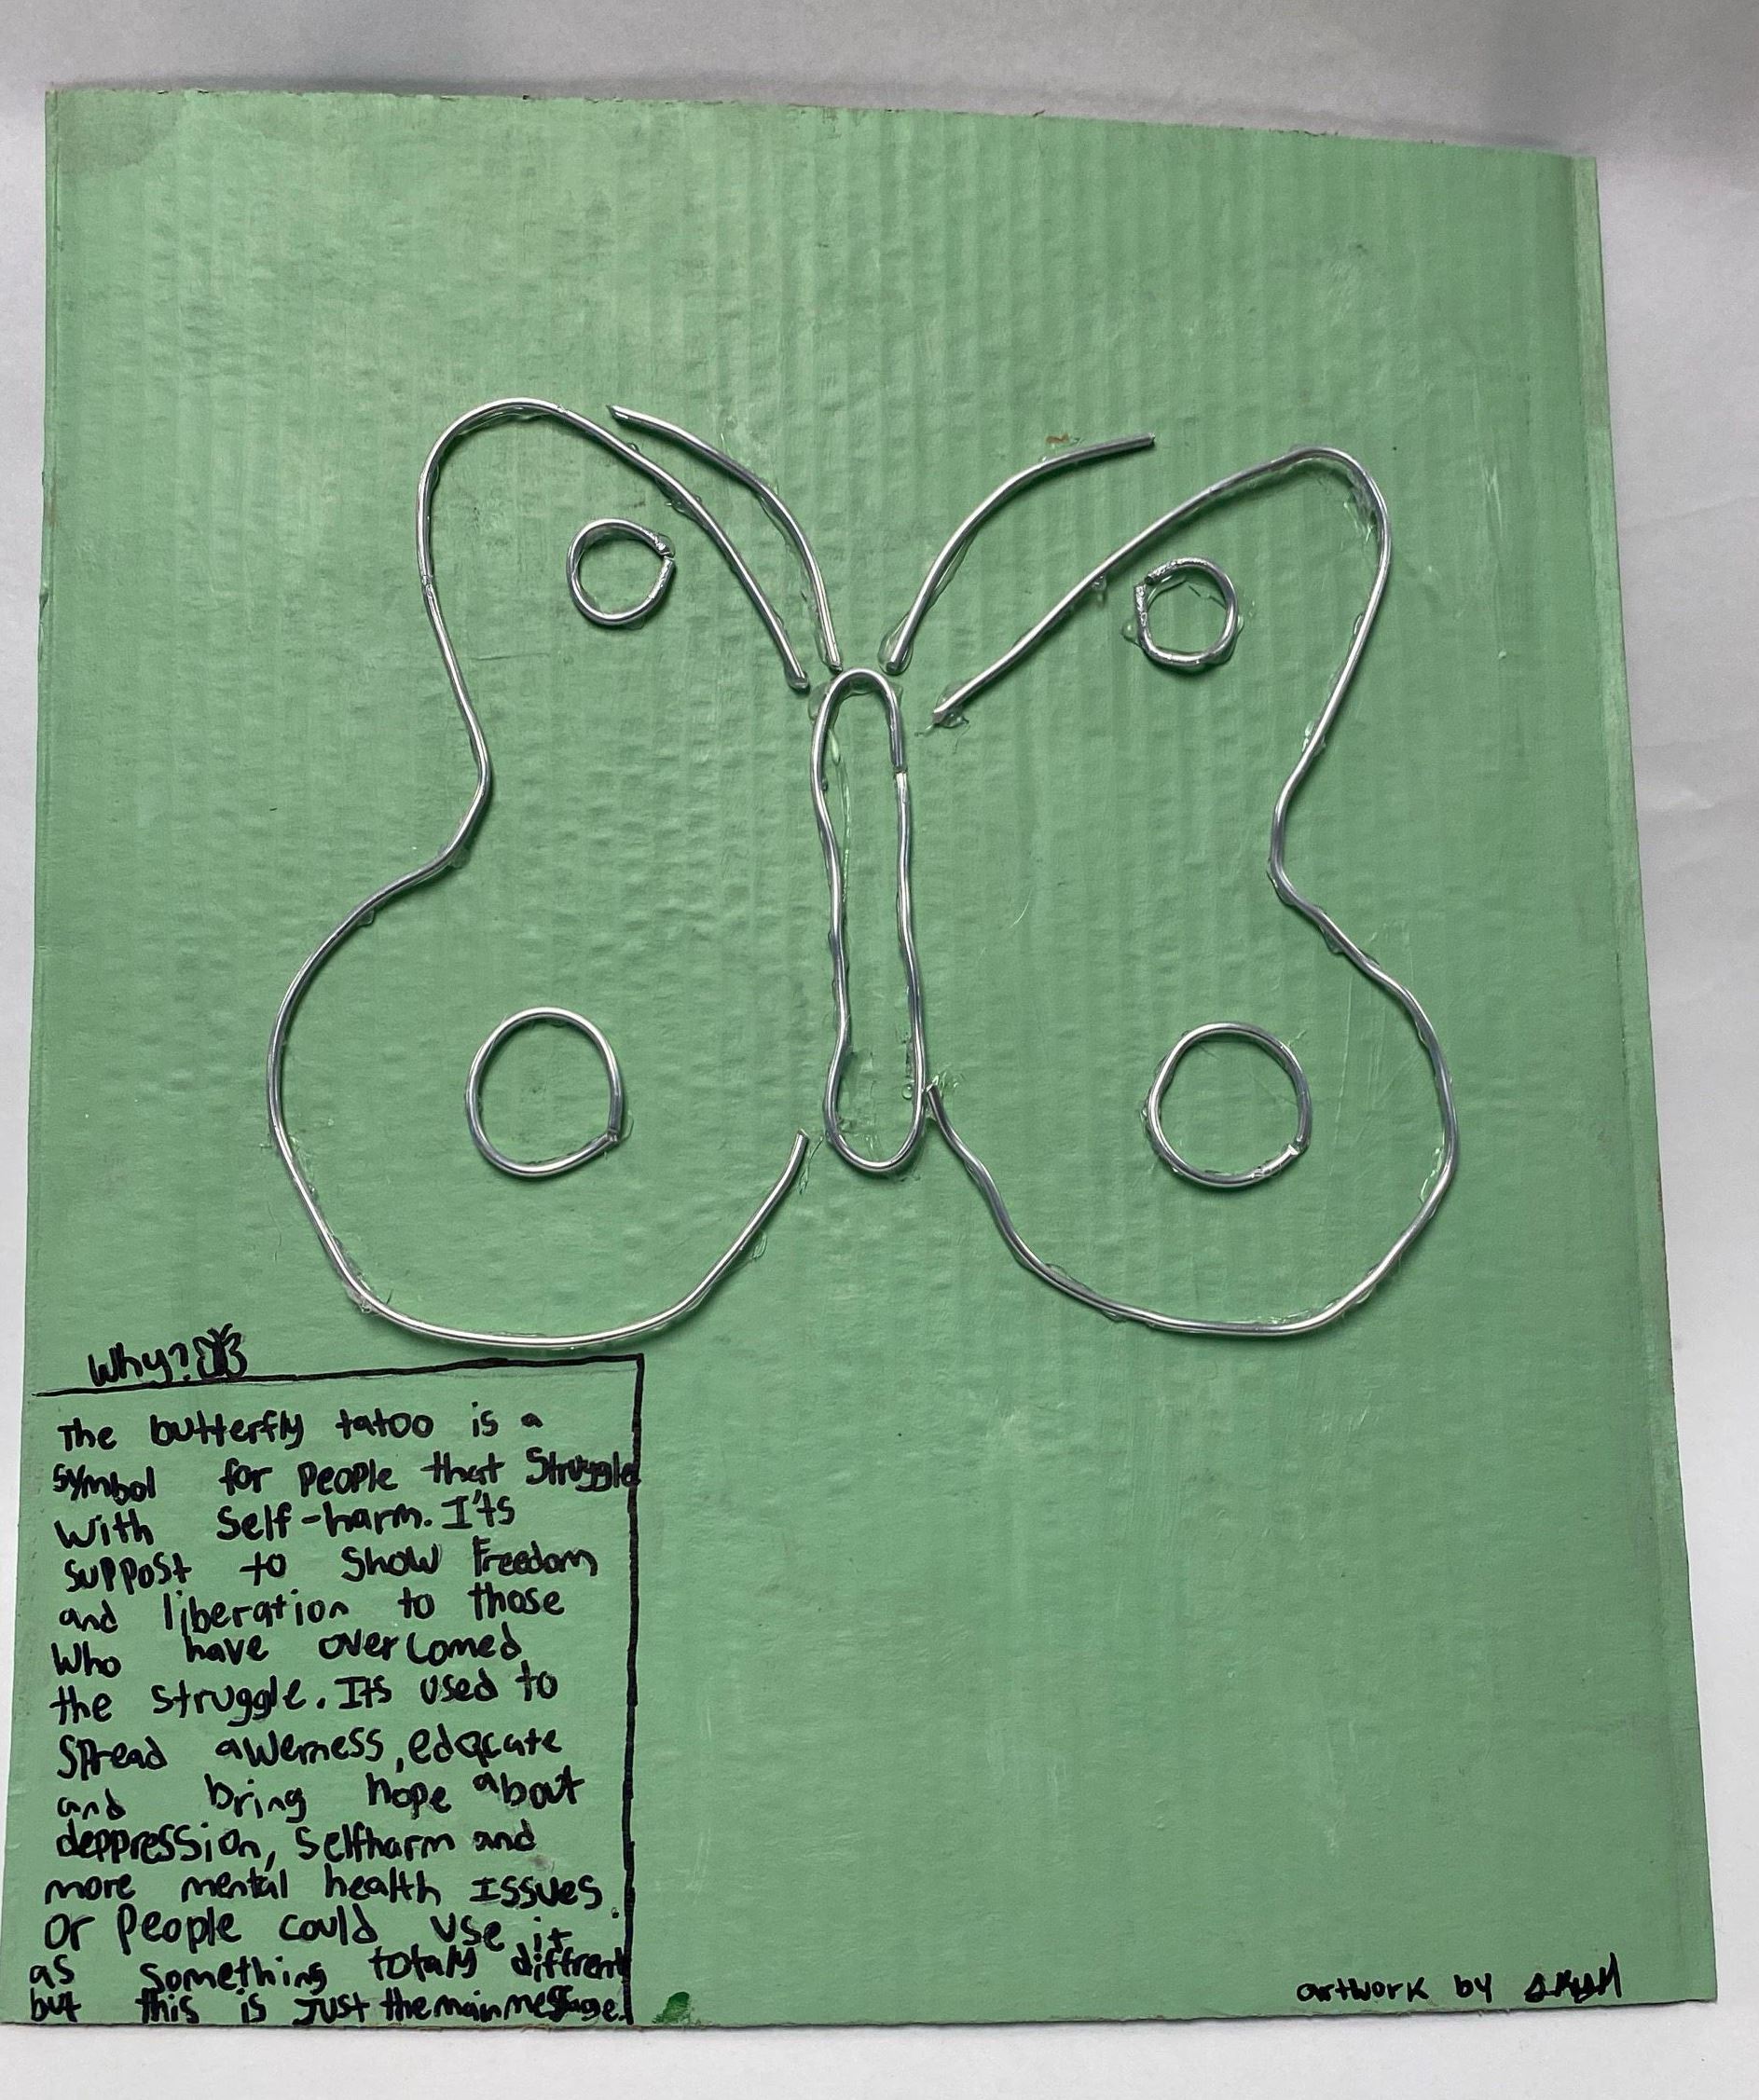 Why?
The butterfly tatoo is a
symbol for people that struggle
with self-harm. I'ts
suppost to show freedom
and liberation to those
who have overcomed
the struggle. Its used to
spread awerness, edqcate
and bring hope about
deppression, selfharm and
more mental health issues.
or people could use it
as something totaly diffrent
but this is just the main message.
artwork by